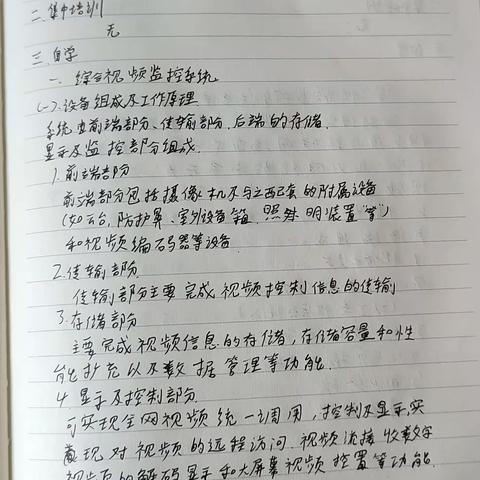 二、集中培训
无
三、自学
一、综合视频监控系统
(一)、设备组成及工作原理
系统由前端部分、传输部分、后端的存储、
显示及监控部分组成.
1.前端部分
前端部分包括摄像机及与之配套的附属设备
(如云台,防护罩、室外设备箱、照明装置"等")
和视频编码器等设备.
2.传输部分
传输部分主要完成视频控制信息的传输
3.存储部分
主要完成视频信息的存储,存储容量和性
能扩充以及数据管理等功能.
4.显示及控制部分
可实现全网视频统一调用,控制及显示,实
现对视频的远程访问.视频流接收数字
视频的解码显示和大屏幕视频控置等功能.